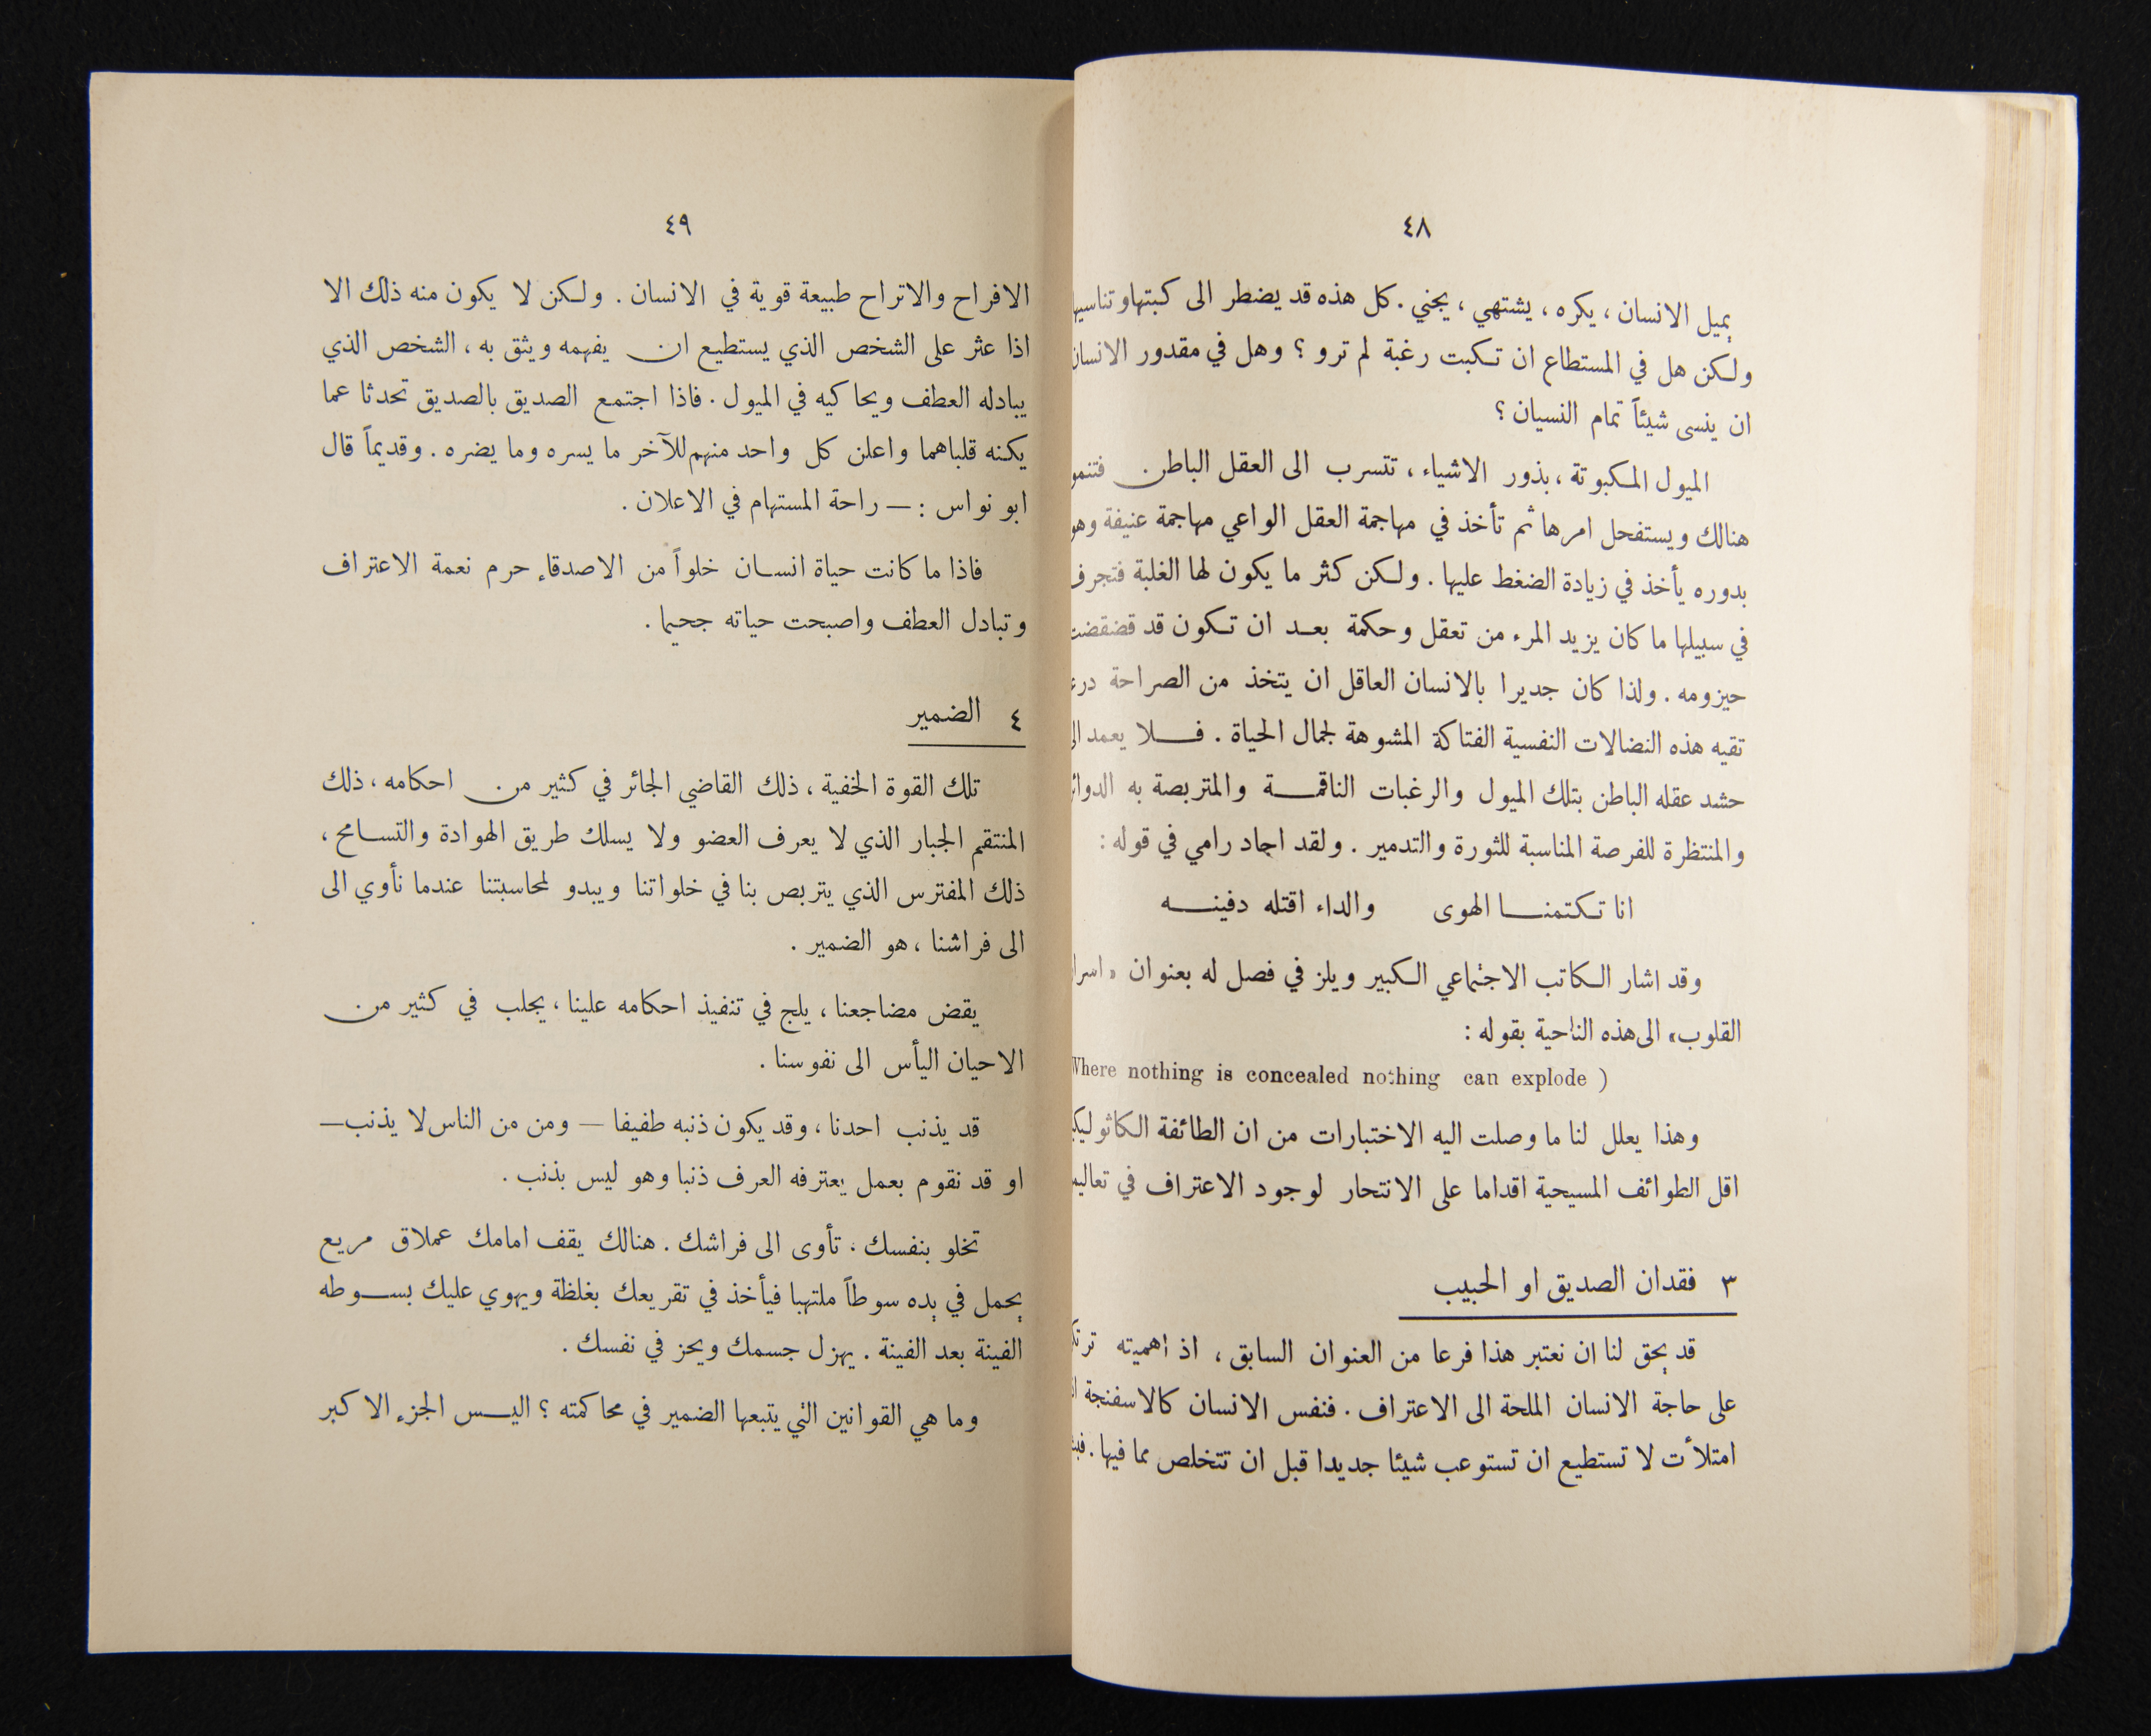 ٤٨
يميل الانسان ، يكره ، يشتهي ، يجني . كل هذه قد يضطر الى كبتها وتناسيها
ولكن هل في المستطاع ان تكبت رغبة لم ترو ؟ وهل في مقدور الانسان
ان ينسى شيئاً تمام النسيان ؟
الميول المكبوتة ، بذور الاشياء ، تتسرب الى العقل الباطن . فتنمو
هنالك ويستفحل امرها ثم تأخذ في مهاجمة العقل الواعي مهاجمة عنيفة وهو
بدوره يأخذ في زيادة الضغط عليها . ولكن كثر ما يكون لها الغلبة فتجرف
في سبيلها ما كان يزيد المرء من تعقل وحكمة بعد ان تكون قد قضقضت
حيزومه . ولذا كان جديرا بالانسان العاقل ان يتخذ من الصراحة
تقيه هذه النضالات النفسية الفتاكة المشوهة لجمال الحياة . فلا يعمد
حشد عقله الباطن بتلك الميول والرغبات الناقمة والمتربصة به الدوائر
والمنتظرة للفرصة المناسبة للثورة والتدمير . ولقد اجاد رامي في قوله :
انا تكتمنا الهوى والداء اقتله دفينه
وقد اشار الكاتب الاجتماعي الكبير ويلز في فصل له بعنوان « اسرار
القلوب » الى هذه الناحية بقوله :
Where nothing is concealed nothing can explode )
وهذا يعلل لنا ما وصلت اليه الاختبارات من ان الطائفة
اقل الطوائف المسيحية اقداما على الانتحار لوجود الاعتراف في
٣ فقدان الصديق او الحبيب
قد يحق لنا ان نعتبر هذا فرعا من العنوان السابق ، اذ اهميته
على حاجة الانسان الملحة الى الاعتراف . فنفس الانسان كالاسفنجة
امتلأت لا تستطيع ان تستوعب شيئا جديدا قبل ان تتخلص مما فيها .
٤٩
الافراح والاتراح طبيعة قوية في الانسان . ولكن لا يكون منه ذلك الا
اذا عثر على الشخص الذي يستطيع ان يفهمه ويثق به ، الشخص الذي
يبادله العطف ويحاكيه في الميول . فاذا اجتمع الصديق بالصديق تحدثا عما
يكنه قلباهما واعلن كل واحد منهم للآخر ما يسره وما يضره . وقديماً قال
ابو نواس : — راحة المستهام في الاعلان .
فاذا ما كانت حياة انسان خلواً من الاصدقاء حرم نعمة الاعتراف
وتبادل العطف واصبحت حياته جحيما .
٤ الضمير
تلك القوة الخفية ، ذلك القاضي الجائر في كثير من احكامه ، ذلك
المنتقم الجبار الذي لا يعرف العضو ولا يسلك طريق الهوادة والتسامح ،
ذلك المفترس الذي يتربص بنا في خلواتنا ويبدو لمحاسبتنا عندما نأوي الى
الى فراشنا ، هو الضمير .
يقض مضاجعنا ، يلج في تنفيذ احكامه علينا ، يجلب في كثير من
الاحيان اليأس الى نفوسنا .
قد يذنب احدنا ، وقد يكون ذنبه طفيفا — ومن من الناس لا يذنب —
او قد نقوم بعمل يعترفه العرف ذنبا وهو ليس بذنب .
تخلو بنفسك ، تأوى الى فراشك . هنالك يقف امامك عملاق مريع
يحمل في يده سوطاً ملتهبا فيأخذ في تقريعك بغلظة ويهوي عليك بسوطه
الفينة بعد الفينة . يهزل جسمك ويحز في نفسك .
وما هي القوانين التي يتبعها الضمير في محاكمته ؟ اليس الجزء الاكبر